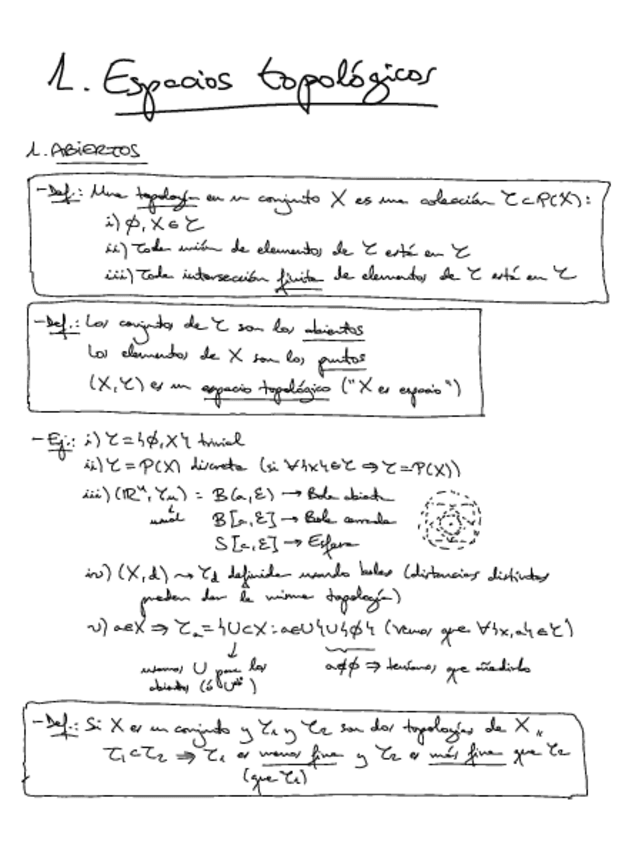 1. Espacios topológicos
1. ABIERTOS
- Def.: Una topología en un conjunto X es una colección τ⊂P(X):
i) ∅, X ∈ τ
ii) Toda unión de elementos de τ está en τ
iii) Toda intersección finita de elementos de τ está en τ
- Def.: Los conjuntos de τ son los abiertos
Los elementos de X son los puntos
(X,τ) es un espacio topológico ("X es espacio")
- Ej.: i) τ = {∅,X} trivial
ii) τ = P(X) discreta (si ∀{x}∈τ ⇒ τ=P(X))
iii) (ℝⁿ, τᵤ) = B(a,ε) → Bola abierta
usual B[a,ε] → Bola cerrada
S[a,ε] → Esfera
iv) (X,d) ⇝ τ_d definida usando bolas (distancias distintas
pueden dar la misma topología)
v) a∈X ⇒ τₐ = {U⊂X : a∈U}∪{∅} (vemos que ∀{x,a}∈τ)
usamos U para los a∉∅ ⇒ teníamos que añadirlo
abiertos (ó U)
- Def.: Si X es un conjunto y τ₁ y τ₂ son dos topologías de X,
τ₁⊂τ₂ ⇒ τ₁ es menos fina y τ₂ es más fina que τ₂
(que τ₁)